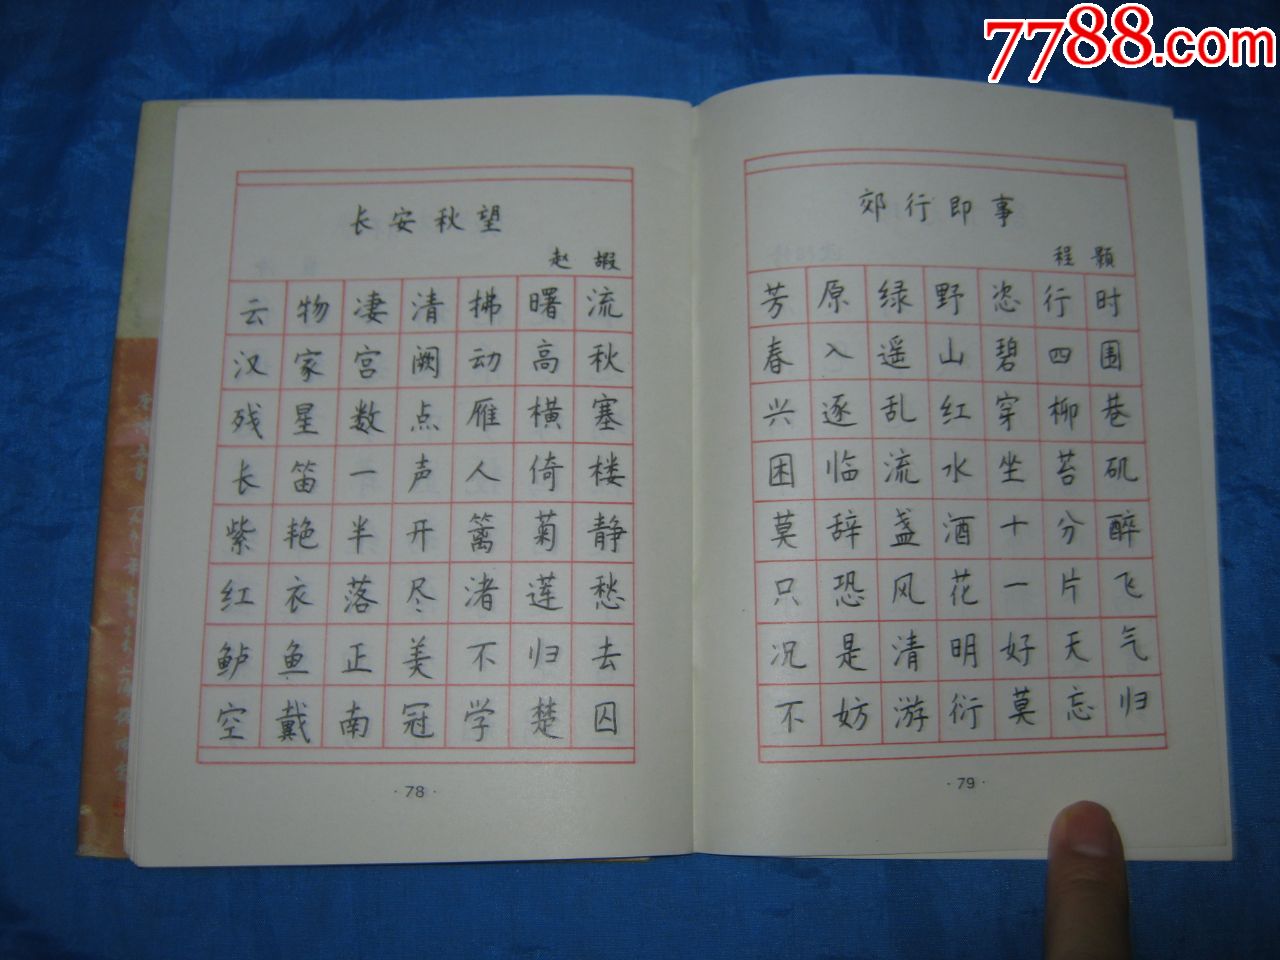 7788.com
长安秋望
赵嘏
云物凄清拂曙流
汉家宫阙动高秋
残星数点雁横塞
长笛一声人倚楼
紫艳半开篱菊静
红衣落尽渚莲愁
鲈鱼正美不归去
空戴南冠学楚囚
·78·
郊行即事
程颢
芳原绿野恣行时
春入遥山碧四围
兴逐乱红穿柳巷
困临流水坐苔矶
莫辞盏酒十分醉
只恐风花一片飞
况是清明好天气
不妨游衍莫忘归
·79·